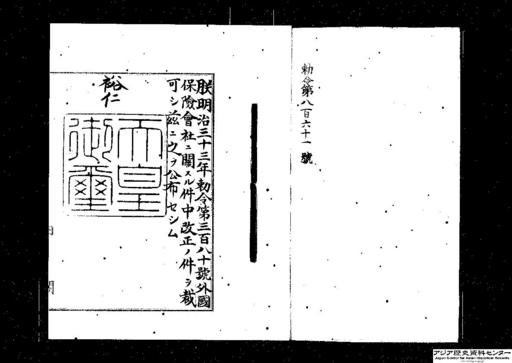 勅令第八百六十一號
朕明治三十三年勅令第三百八十號外國
保險會社ニ關スル件中改正ノ件ヲ裁
可シ茲ニ之ヲ公布セシム
裕仁
天皇
御璽
内閣
アジア歴史資料センター
Japan Center for Asian Historical Records